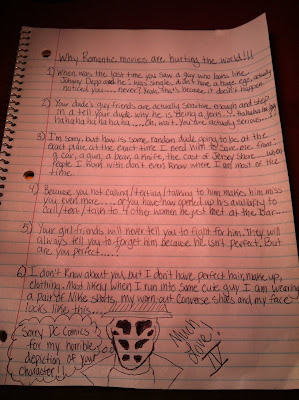 Why Romantic movies are hurting the world!!!
1) When was the last time you saw a guy who looks like
Johnny Depp and he's was single, didn't have a huge ego, actually
noticed you...... never? Yeah, that's because it doesn't happen.
2) Your dude's guy friends are actually sensitive enough and step
in a tell your dude why he is being a jerk...... ha ha ha ha ha
ha ha ha ha ha ha ha.... Oh, wait. You're actually serious....?
3) I'm sorry, but how is some random dude going to be at the
exact place at the exact time I need him to save me from:
a car, a gun, a bear, a knife, the cast of Jersey Shore.... when
people I work with don't even know where I am most of the
time.
4) Because you not calling/texting/talking to him makes him miss
you even more..... or you have now opened up his availability to
call/text/talk to 4 other women he just met at the bar.....
5) Your girl friends will never tell you to fight for him. They will
always tell you to forget him because he isn't perfect. But
are you perfect.....?
6) I don't know about you, but I don't have perfect hair, make up,
clothing. Most likely when I run into some cute guy I am wearing
a pair of Nike shorts, my worn out Converse shoes and my face
looks like this....
Sorry DC Comics
for my horrible
depiction of your
character!!
Much
love!